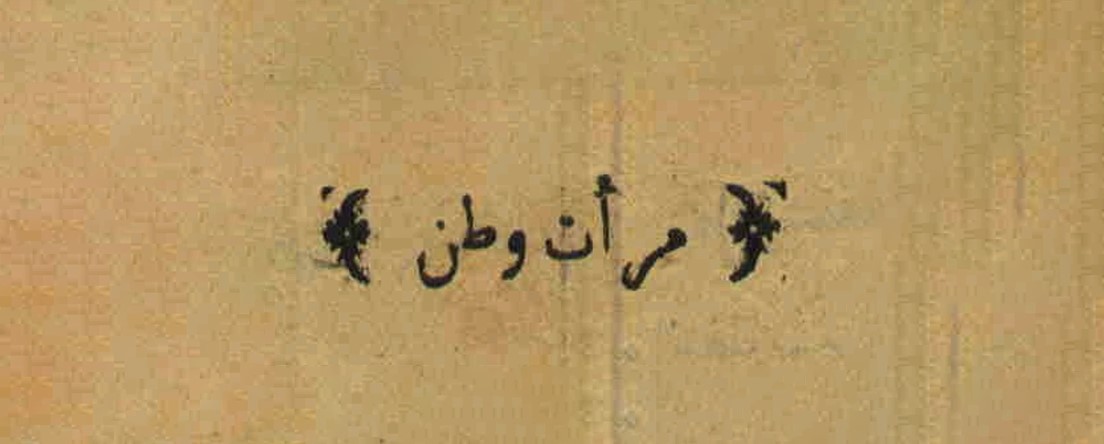 ﴿ مرأت وطن ﴾